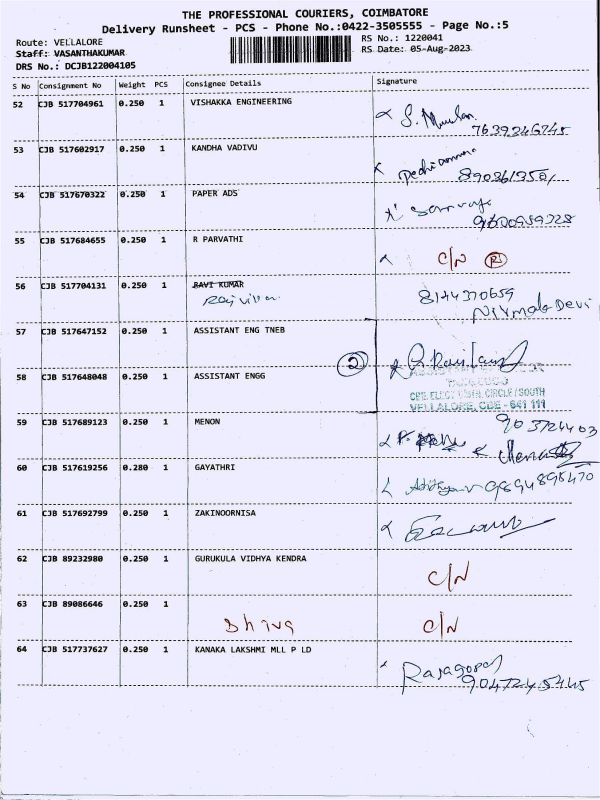 THE PROFESSIONAL COURIERS, COIMBATORE
Delivery Runsheet - PCS - Phone No.:0422-3505555 - Page No.:5
Route: VELLALORE
RS No.: 1220041
Staff: VASANTHAKUMAR
RS Date: 05-Aug-2023
DRS No.: DCJB122004105
S No Consignment No Weight PCS Consignee Details Signature
52 CJB 517704961 0.250 1 VISHAKKA ENGINEERING
7639246745
53 CJB 517602917 0.250 1 KANDHA VADIVU
54 CJB 517670322 0.250 1 PAPER ADS
9600959228
55 CJB 517684655 0.250 1 R PARVATHI
C/N
56 CJB 517704131 0.250 1 RAVI KUMAR
8144370659
Nirmala Devi
57 CJB 517647152 0.250 1 ASSISTANT ENG TNEB
2
58 CJB 517648048 0.250 1 ASSISTANT ENGG
CIRCLE/SOUTH
VELLALORE, CBE - 641 111
59 CJB 517689123 0.250 1 MENON
60 CJB 517619256 0.280 1 GAYATHRI
9894895470
61 CJB 517692799 0.250 1 ZAKINOORNISA
62 CJB 89232980 0.250 1 GURUKULA VIDHYA KENDRA
C/N
63 CJB 89086646 0.250 1
Shiva C/N
64 CJB 517737627 0.250 1 KANAKA LAKSHMI MLL P LD
Rajagopal